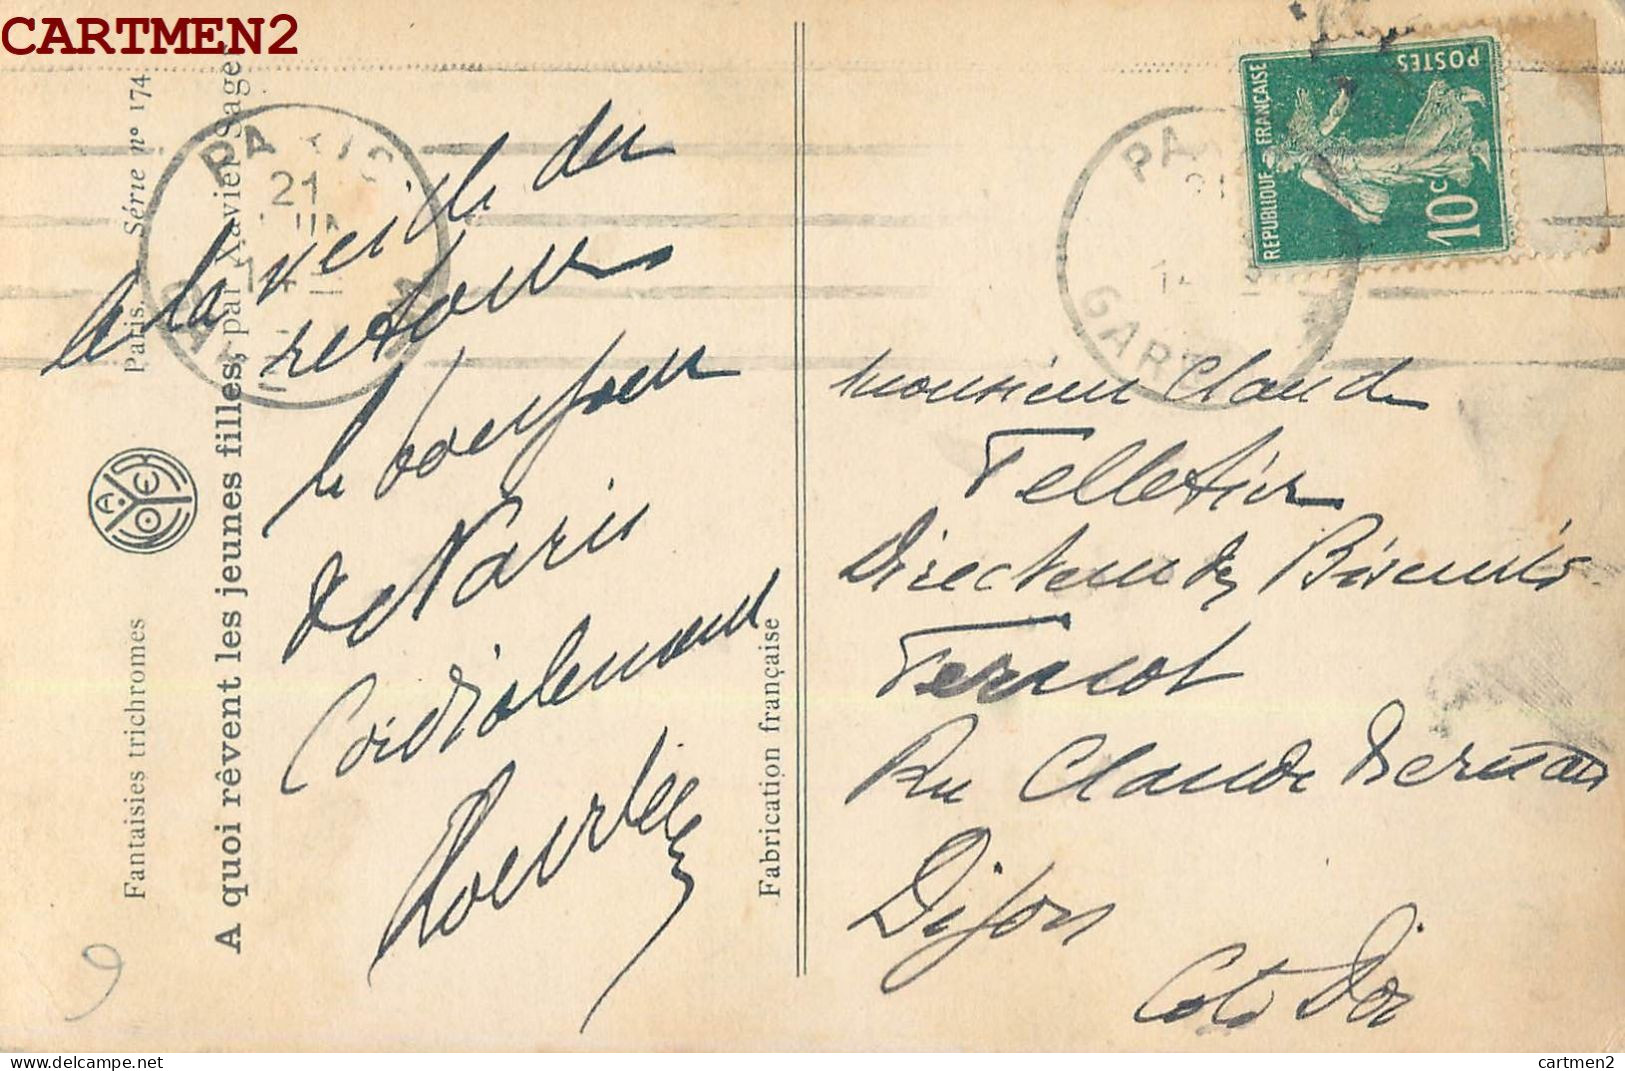 CARTMEN2
Paris. Série nº 174
Fantaisies trichromes
A quoi rêvent les jeunes filles, par Xavier Sager
A la veille du
retour
le bonjour
de Paris
Cordialement
Fabrication française
PARIS
21
JUIN
14
PA
21
14
GARE
REPUBLIQUE FRANÇAISE
POSTES
10c
Monsieur Claude
Pelletier
Directeur des Biscuits
Pernot
Rue Claude Bernard
Dijon
Cote Dor
9
cartmen2